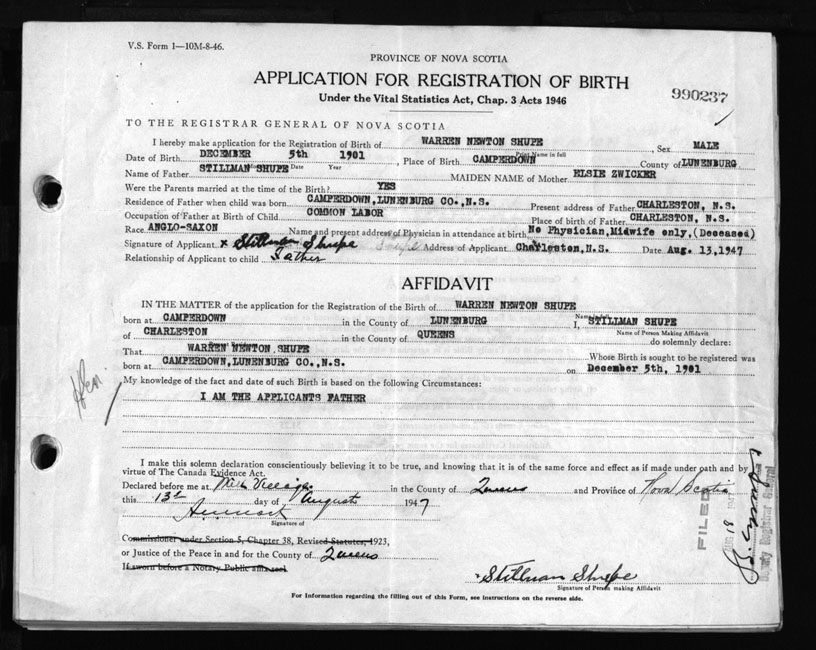 V.S. Form 1—10M-8-46.
PROVINCE OF NOVA SCOTIA
APPLICATION FOR REGISTRATION OF BIRTH
Under the Vital Statistics Act, Chap. 3 Acts 1946
990237
TO THE REGISTRAR GENERAL OF NOVA SCOTIA
I hereby make application for the Registration of Birth of WARREN NEWTON SHUPE, Sex MALE
Name in full
Date of Birth DECEMBER 5th 1901, Place of Birth CAMPERDOWN County of LUNENBURG
Date Year
Name of Father STILLMAN SHUPE MAIDEN NAME of Mother ELSIE ZWICKER
Were the Parents married at the time of the Birth? YES
Residence of Father when child was born CAMPERDOWN, LUNENBURG CO., N.S. Present address of Father CHARLESTON, N.S.
Occupation of Father at Birth of Child COMMON LABOR Place of birth of Father CHARLESTON, N.S.
Race ANGLO-SAXON Name and present address of Physician in attendance at birth No Physician, Midwife only, (Deceased)
Signature of Applicant x Stillman Shupe Address of Applicant Charleston, N.S. Date Aug. 13, 1947
Relationship of Applicant to child Father
AFFIDAVIT
IN THE MATTER of the application for the Registration of the Birth of WARREN NEWTON SHUPE
Name in full
born at CAMPERDOWN in the County of LUNENBURG I, STILLMAN SHUPE
Name of Person Making Affidavit
of CHARLESTON in the County of QUEENS do solemnly declare:
That WARREN NEWTON SHUPE Whose Birth is sought to be registered was
born at CAMPERDOWN, LUNENBURG CO., N.S. on December 5th, 1901
My knowledge of the fact and date of such Birth is based on the following Circumstances:
I AM THE APPLICANTS FATHER
I make this solemn declaration conscientiously believing it to be true, and knowing that it is of the same force and effect as if made under oath and by
virtue of The Canada Evidence Act.
Declared before me at Mill Village in the County of Queens and Province of Nova Scotia
this 13th day of August 1947
Signature of
Commissioner under Section 5, Chapter 38, Revised Statutes, 1923,
or Justice of the Peace in and for the County of Queens
If sworn before a Notary Public affix seal
x Stillman Shupe
Signature of Person making Affidavit
For Information regarding the filling out of this Form, see instructions on the reverse side.
FILED
Deputy Registrar General